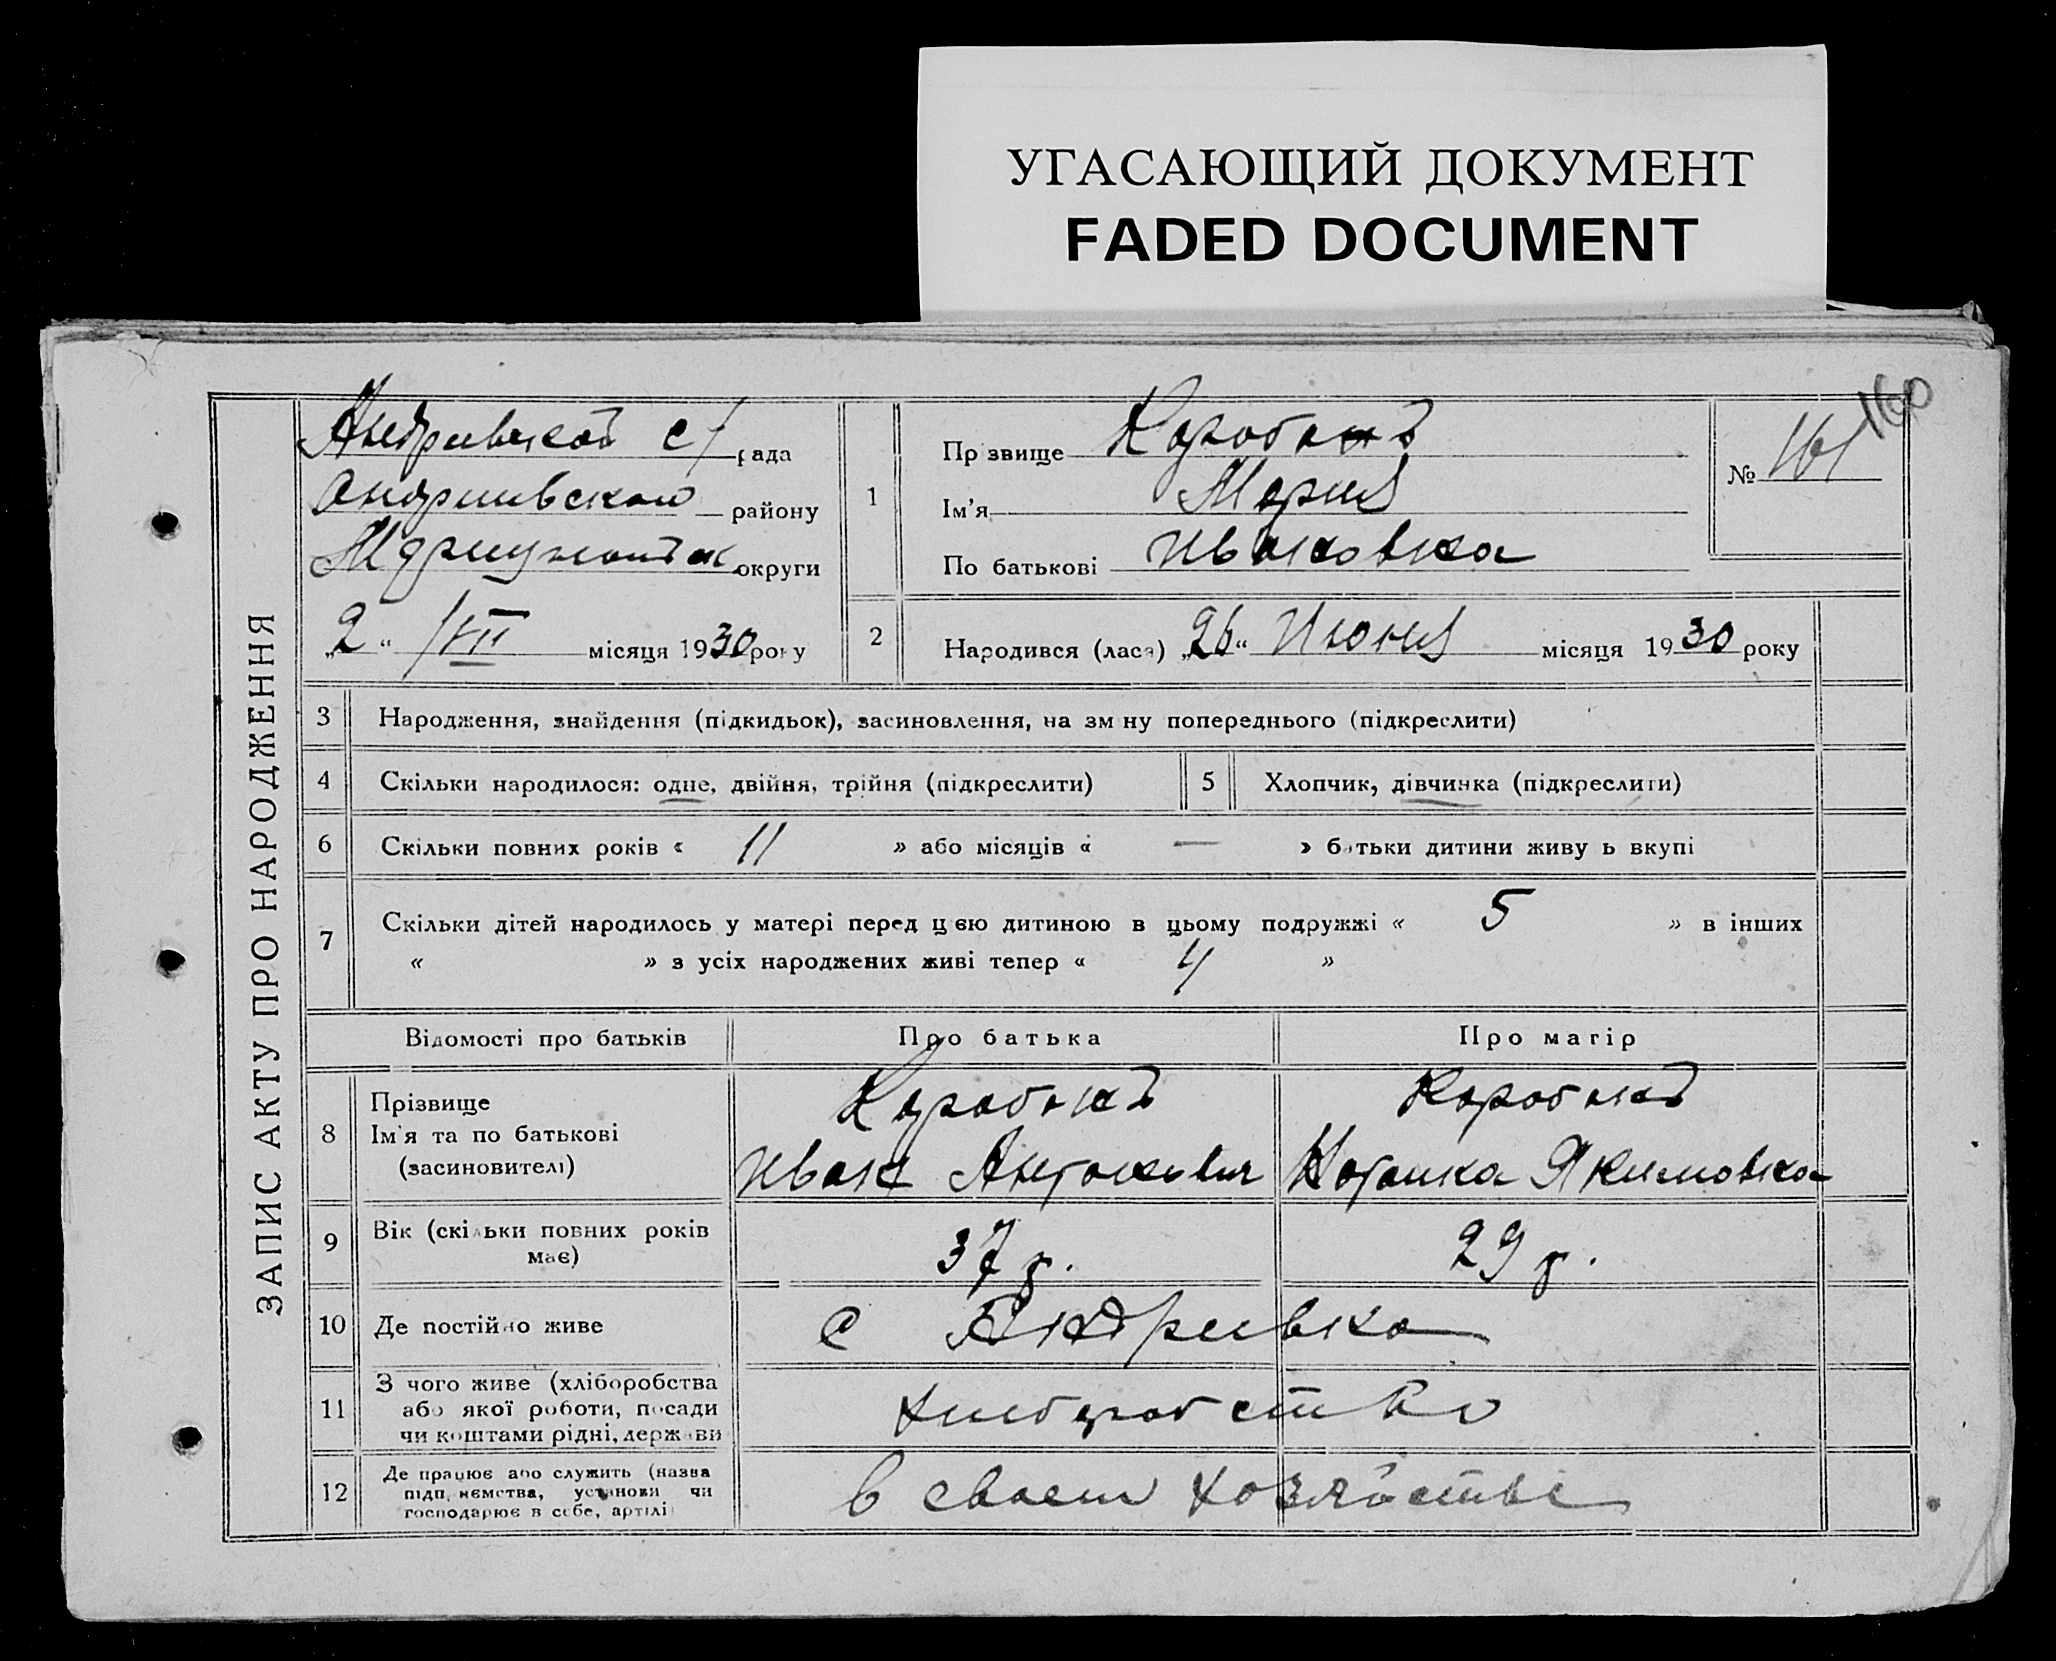 УГАСАЮЩИЙ ДОКУМЕНТ
FADED DOCUMENT
160
ЗАПИС АКТУ ПРО НАРОДЖЕННЯ
Андривской с/рада
Андриивской району
округи
„2“ VII місяця 1930 року
1
Прізвище
Ім'я Мария
По батькові Ивановна
№ 161
2
Народився (лася) „26“ Июня місяця 1930 року
3 Народження, знайдення (підкидьок), засиновлення, на зміну попереднього (підкреслити)
4 Скільки народилося: одне, двійня, трійня (підкреслити)
5 Хлопчик, дівчинка (підкреслити)
6 Скільки повних років « 11 » або місяців « — » батьки дитини живуть вкупі
7 Скільки дітей народилось у матері перед цією дитиною в цьому подружжі « 5 » в інших
« » з усіх народжених живі тепер « 4 »
Відомості про батьків Про батька Про матір
8 Прізвище
Ім'я та по батькові
(засиновителі)
Иван Антонович
Якимовна
9 Вік (скільки повних років
має)
37 г. 29 г.
10 Де постійно живе с Андривка
11 З чого живе (хліборобства
або якої роботи, посади
чи коштами рідні, держави
12 Де працює або служить (назва
підприємства, установи чи
господарює в себе, артілі
в своем хозяйстве